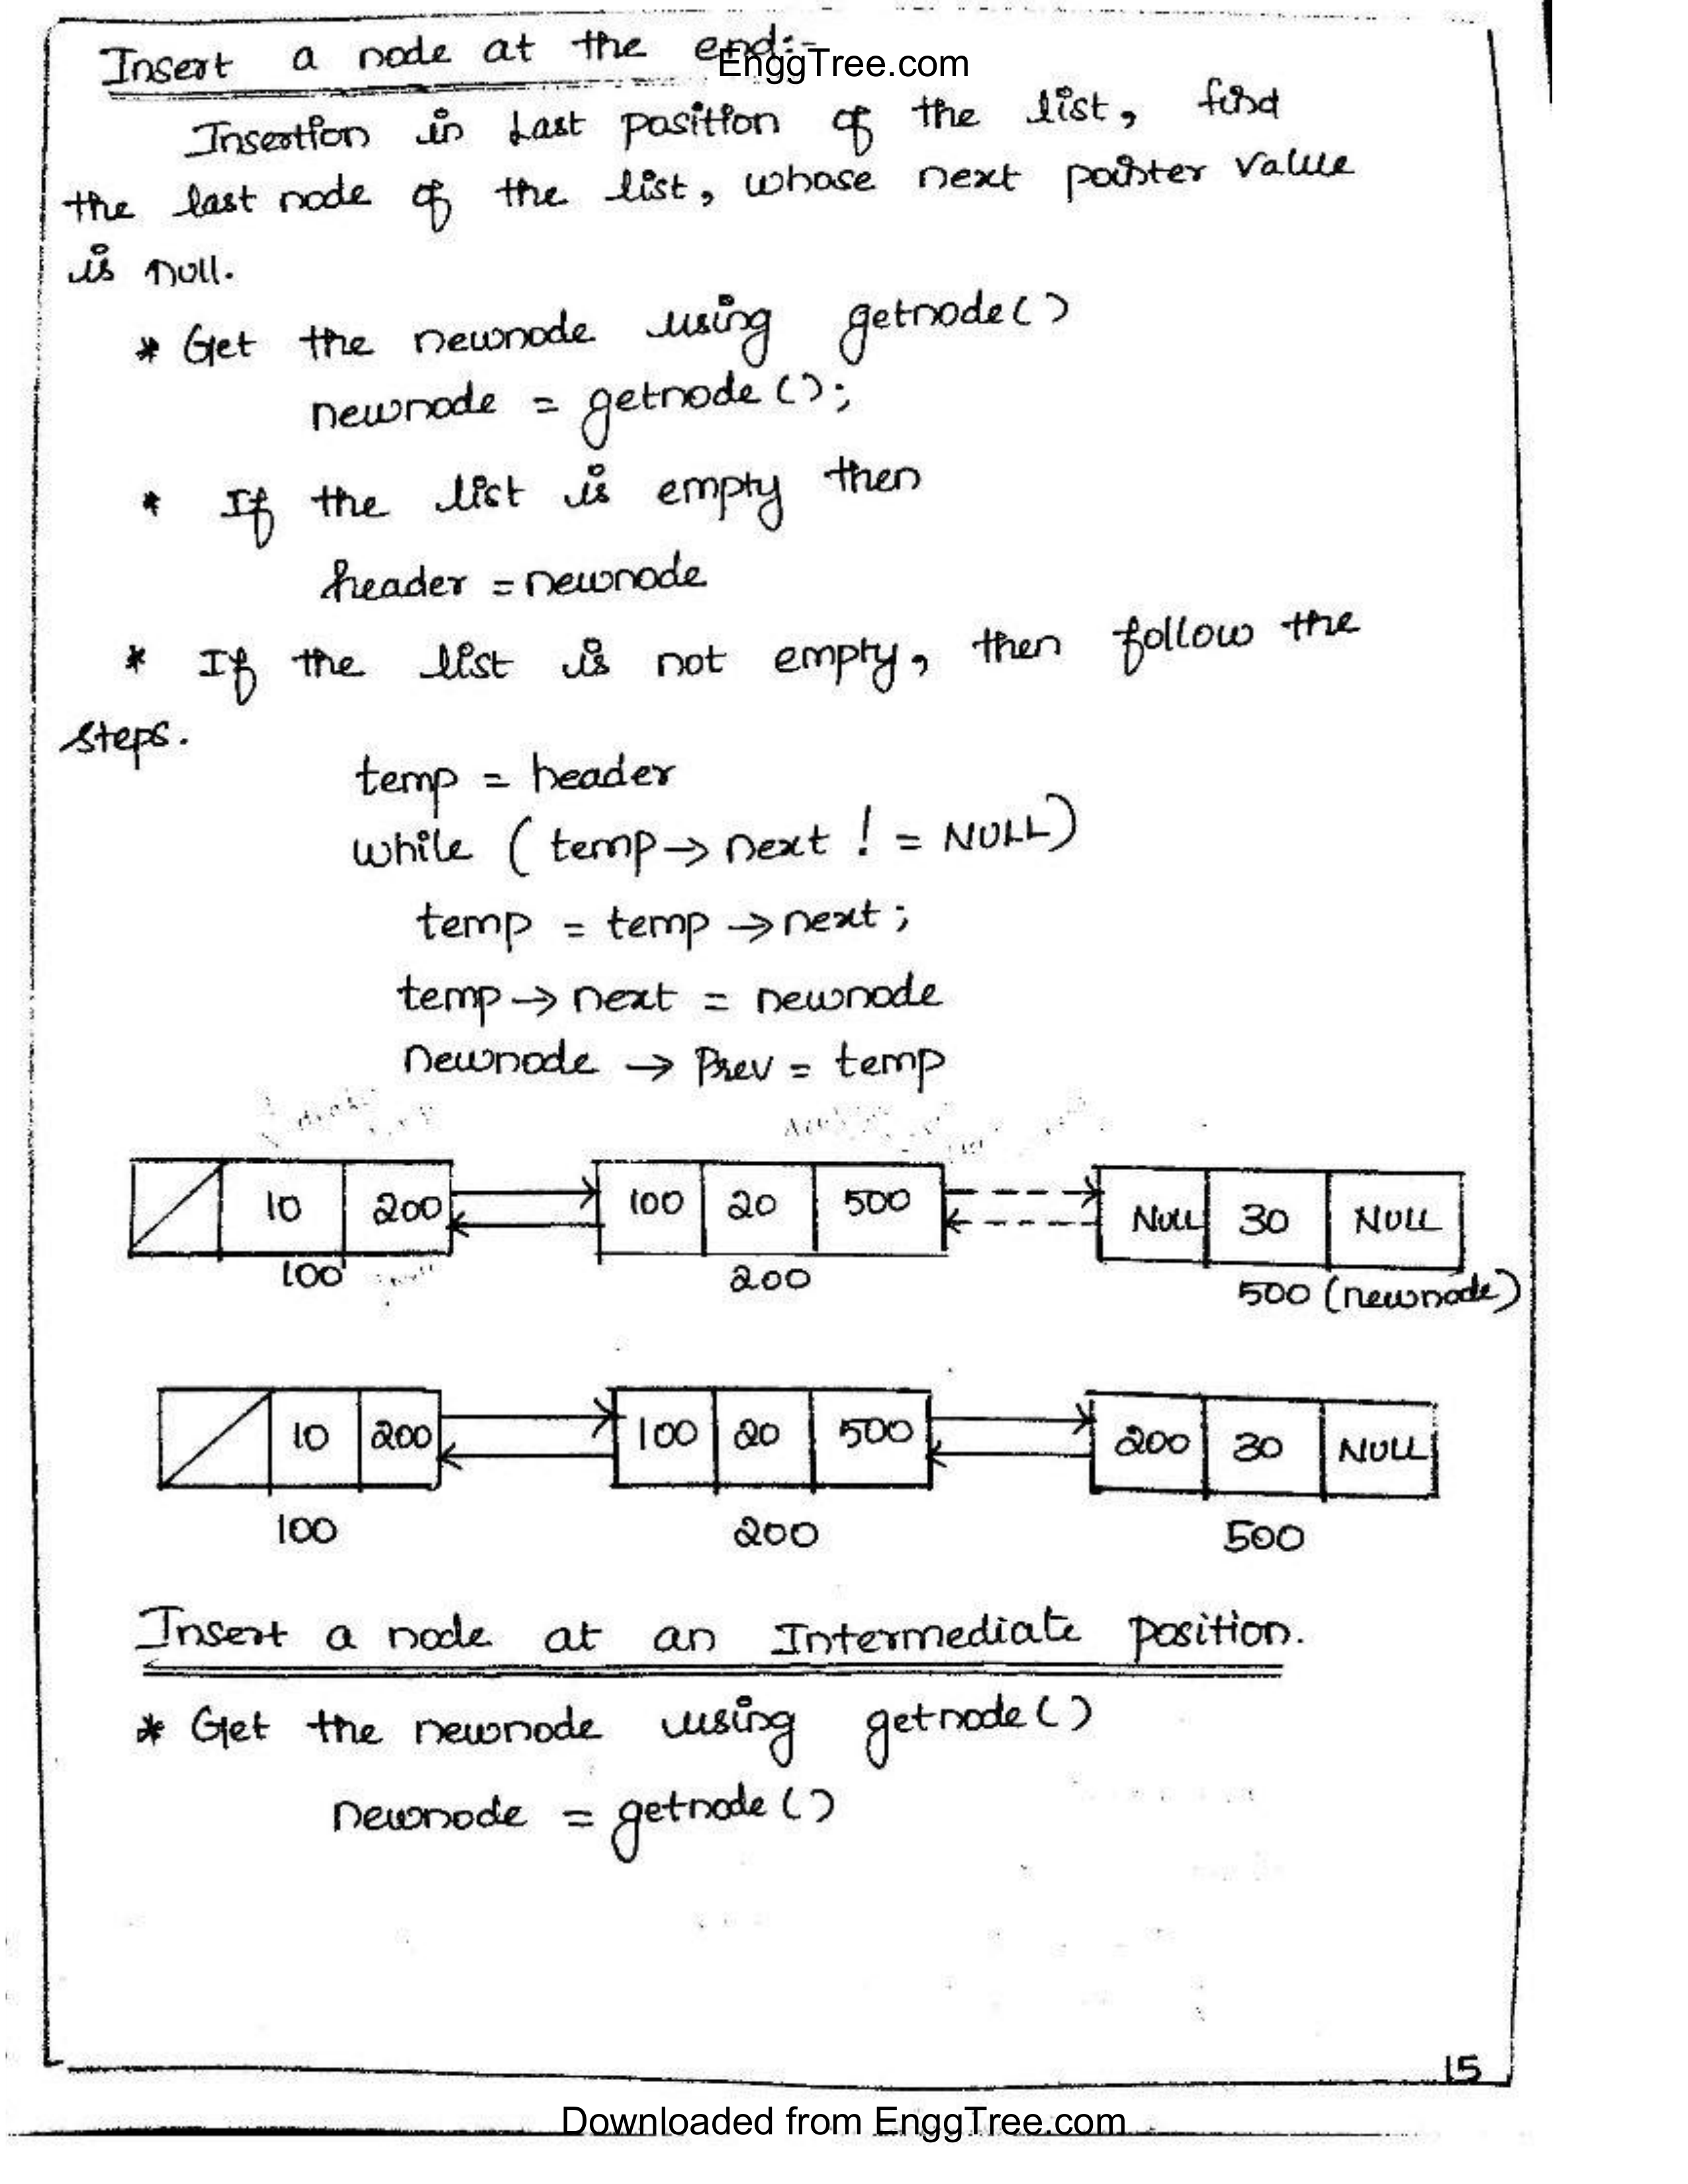 Insert a node at the end:-
EnggTree.com
Insertion in Last position of the list, find
the last node of the list, whose next pointer value
is null.
* Get the newnode using getnode()
newnode = getnode();
* If the list is empty then
header = newnode
* If the list is not empty, then follow the
steps.
temp = header
while (temp→next != NULL)
temp = temp→next;
temp→next = newnode
newnode → Prev = temp
10 200 100 20 500 NULL 30 NULL
100 200 500 (newnode)
10 200 100 20 500 200 30 NULL
100 200 500
Insert a node at an Intermediate position.
* Get the newnode using getnode()
newnode = getnode()
15
Downloaded from EnggTree.com